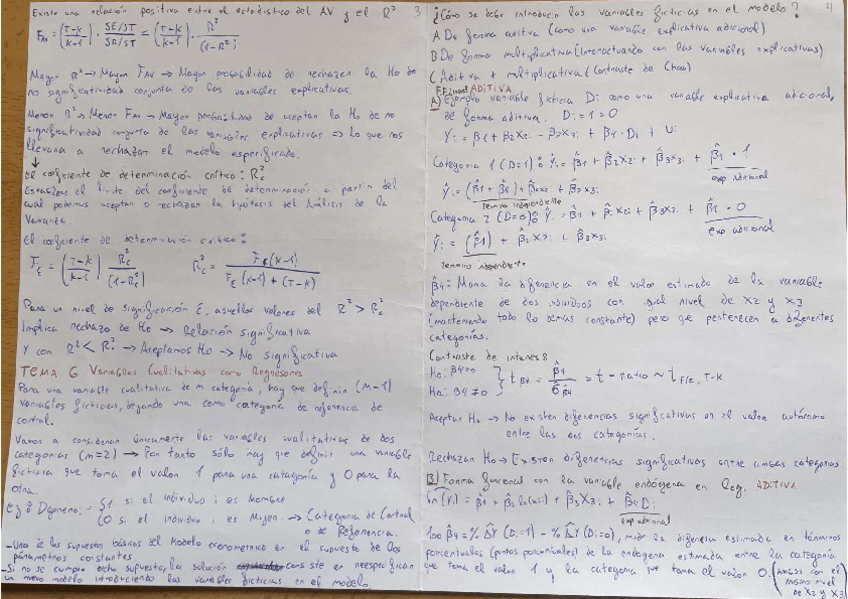 Existe una relación positiva entre el estadístico del AV y el R² 3
F_AV = (T-k / k-1) · (SE/ST / SR/ST) = (T-k / k-1) · R² / (1-R²)
Mayor R² → Mayor F_AV → Mayor probabilidad de rechazar la Ho de
no significatividad conjunta de las variables explicativas.
Menor R² → Menor F_AV → Mayor probabilidad de aceptar la Ho de no
significatividad conjunta de las variables explicativas => Lo que nos
llevaria a rechazar el modelo especificado.
↓
El coeficiente de determinación crítico: R²c
Establece el limite del coeficiente de determinación a partir del
cual podemos aceptar o rechazar la hipótesis del Análisis de la
Varianza.
El coeficiente de determinación crítico:
Fε = (T-k / k-1) R²c / (1-R²c) R²c = Fε(k-1) / Fε(k-1) + (T-k)
Para un nivel de significación ε, aquellos valores del R² > R²c
Implica rechazo de Ho → Relación significativa
Y con R² < R²c → Aceptamos Ho → No significativa
TEMA 6 Variables Cualitativas como Regresores
Para una variable cualitativa de m categoría, hay que definir (m-1)
variables ficticias, dejando una como categoría de referencia de
control.
Vamos a considerar únicamente las variables cualitativas de dos
categorías (m=2) → Por tanto sólo hay que definir una variable
ficticia que toma el valor 1 para una categoría y 0 para la
otra.
Ej: Dgenero: {1 si el individuo i es hombre
{0 si el individuo i es Mujer → Categoria de Control
o de Referencia.
-Uno de los supuestos básicos del Modelo econometrico es el supuesto de los
parámetros constantes
-Si no se cumple dicho supuesto, la solución consiste en reespecificar
un nuevo modelo introduciendo las variables ficticias en el modelo.
¿Cómo se debe introducir las variables ficticias en el modelo? 4
A De forma aditiva (como una variable explicativa adicional)
B De forma multiplicativa (Interactuando con las variables explicativas)
C Aditiva + multiplicativa (Contraste de Chow)
ADITIVA
A) Ejemplo variable ficticia Di como una variable explicativa adicional,
de forma aditiva. Di = 1 = 0
Yi = β1 + β2X2i - β3X3i + β4·Di + Ui
Categoria 1 (D=1): Ŷi = β̂1 + β̂2X2i + β̂3X3i + β̂4 · 1
exp adicional
Ŷi = (β̂1 + β̂4) + β̂2X2i + β̂3X3i
Termino independiente
Categoria 2 (D=0): Ŷi = β̂1 + β̂2X2i + β̂3X3i + β̂4 · 0
exp adicional
Ŷi = (β̂1) + β̂2X2i + β̂3X3i
Termino independiente
β̂4 = Mana la diferencia en el valor estimado de la variable
dependiente de dos individuos con igual nivel de X2 y X3
(manteniendo todo lo demás constante) pero que pertenecen a diferentes
categorías.
Contraste de interes:
Ho: β4=0
Ha: β4≠0 } t β4 = β̂4 / σ̂ β4 = t - ratio ~ t ε/2, T-k
Aceptar Ho → No existen diferencias significativas en el valor autónomo
entre las dos categorías.
Rechazar Ho → Existen diferencias significativas entre ambas categorias
B) Forma funcional con la variable endógena en log. ADITIVA
ln(Yi) = β̂1 + β̂2 ln(X2i) + β̂3X3i + β̂4Di
exp adicional
100 β̂4 = % ΔŶ (Di=1) - % ΔŶ (Di=0), mide la diferencia estimada en términos
porcentuales (puntos porcentuales) de la endogena estimada entre la categoría
que toma el valor 1 y la categoría que toma el valor 0. (Ambas con el
mismo nivel
de X2 y X3)